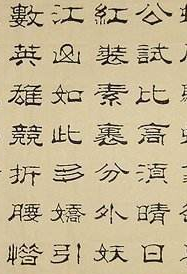 公試比高湏晴日
紅裝素裹分外妖
江山如此多嬌引
數英雄競折腰惜